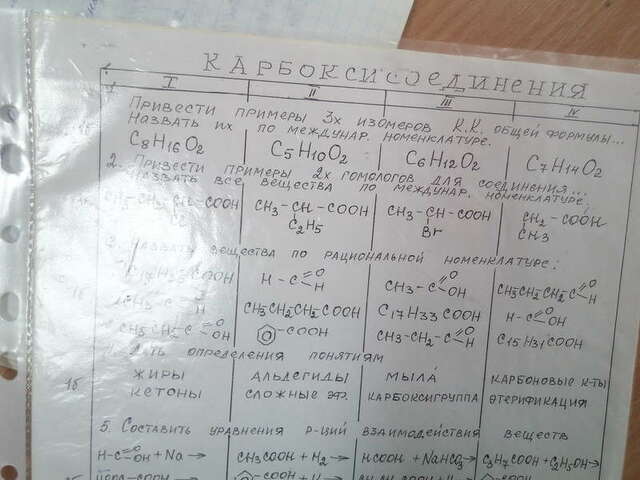 КАРБОКСИСОЕДИНЕНИЯ
I II III IV
1. ПРИВЕСТИ ПРИМЕРЫ 3х ИЗОМЕРОВ К.К. ОБЩЕЙ ФОРМУЛЫ...
НАЗВАТЬ ИХ ПО МЕЖДУНАР. НОМЕНКЛАТУРЕ.
C8H16O2 C5H10O2 C6H12O2 C7H14O2
2. ПРИВЕСТИ ПРИМЕРЫ 2х ГОМОЛОГОВ ДЛЯ СОЕДИНЕНИЯ...
НАЗВАТЬ ВСЕ ВЕЩЕСТВА ПО МЕЖДУНАР. НОМЕНКЛАТУРЕ.
CH3-CH-COOH CH3-CH-COOH CH2-COOH
C2H5 Br CH3
3. НАЗВАТЬ ВЕЩЕСТВА ПО РАЦИОНАЛЬНОЙ НОМЕНКЛАТУРЕ:
H-C=O H CH3-C=O OH CH3CH2CH2-C=O H
1б CH3CH2CH2COOH C17H33COOH H-C=O OH
CH3CH2C=O OH -COOH CH3-CH2-C=O H C15H31COOH
4. ДАТЬ ОПРЕДЕЛЕНИЯ ПОНЯТИЯМ
1б ЖИРЫ АЛЬДЕГИДЫ МЫЛА КАРБОНОВЫЕ К-ТЫ
КЕТОНЫ СЛОЖНЫЕ ЭФ. КАРБОКСИГРУППА ЭТЕРИФИКАЦИЯ
5. СОСТАВИТЬ УРАВНЕНИЯ Р-ЦИЙ ВЗАИМОДЕЙСТВИЯ ВЕЩЕСТВ
H-C=O OH + Na → CH3COOH + H2 → HCOOH + NaHCO3 → C3H7COOH + C2H5OH →